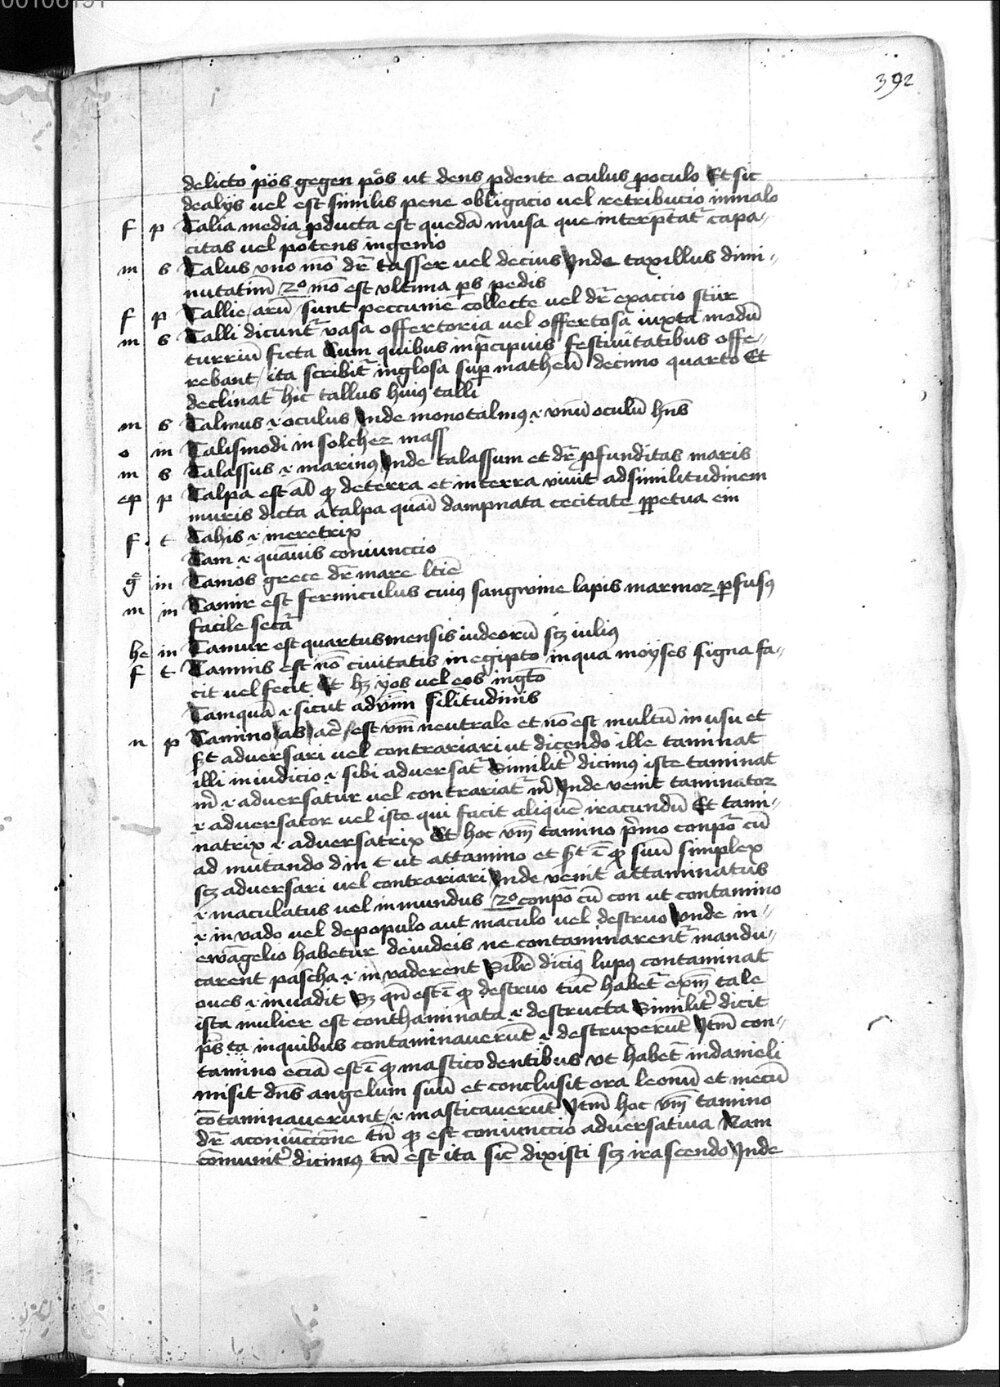 00106191
392
delicto pös gegen pös ut dens p̄dente oculus p̄oculo Et sic
dealijs vel est similis pene obligacio vel retribucio inmalo
f p Talia media p̄ducta est quedā musa que interp̄tat᷑ capa-
citas vel potens ingenio
m s Talus vno mō dr̄ tasser vel decius Inde taxillus dimi-
nutatiuū 2o mō est vltima ps pedis
f p Tallie / arū / sunt peccunie collecte vel dr̄ exaccio stür
m s Talli dicunt᷑ vasa offertoria vel offertosa iuxta modū
turriū ficta Cum quibus inp̄cipuis festiuitatibus offe-
rebant / ita scribit᷑ inglosa sup matheū decimo quarto Et
declinat᷑ hic tallus huius talli
m s Talmus .i. oculus Inde monotalmus .i. vnū oculū hn̄s
o in Talismodi in solcher mass
m s Talassus .i. marinus Inde talassum et dr̄ p̄funditas maris
ep p Talpa est aīal q̄ deterra et in terra viuit adsimilitudinem
muris dicta a talpa quasi dampnata cecitate p̄petua em
f t Tahis .i. meretrix
Tam .i. quāuis coniunccio
g̊ in Tamos grece dr̄ mare ltīe
m in Tamir est fermiculus cuius sangwine lapis marmor p̄fusus
facile secat᷑
he in Tamur est quartus mensis iudeorū sc̄ iulius
f t Tamnis est nō ciuitatis in egipto inqua moyses signa fa-
cit vel fecit Et hz yos vel eos in gt̄o
Tamquā .i. sicut adv̄m silitudinis
n p Tamino / as / ac̄ / est vm̄ neutrale et nō est multū in usu et
st adversari vel contrariari ut dicendo ille taminat
illi in iudicio .i. sibi adversat᷑ Similit᷑ dicimus iste taminat
m̄ .i. adversatur vel contrariat᷑ m̄ Inde venit taminator
.i. adversator vel iste qui facit aliquē iracundū Et tami-
natrix .i. adversatrix Et hoc vm̄ tamino p̄mo conpo᷑ cū
ad mutando d in t ut attamino et st᷑ .i. q̄ suū simplex
sc̄ adversari vel contrariari Inde venit attaminatus
.i. maculatus vel inmundus 2o conpo᷑ cū con ut contamino
.i. in vado vel depopulo aut maculo vel destruo Unde in-
ewāgelio habetur deiudeis ne contaminarent᷑ mandu-
carent pascha .i. in vaderent Silr̄ dicimus lupus contaminat
oues .i. inuadit Sz qn̄ est .i. q̄ destruo tūc habet᷑ exm̄ tale
ista mulier est conthaminata .i. destructa Similit᷑ dicit
ps̄ta inquibus contaminauerūt .i. destruxerūt Itm̄ con-
tamino eciā est .i. q̄ mastico dentibus vt habet᷑ in danieli
misit dn̄s angelum suū et conclusit ora leonū et mecū
cōtaminauerunt .i. masticauerūt Itm̄ hoc vm̄ tamino
dr̄ aconiūccione tn̄ q̄ est coniunccio adversatiua Nam
cōmunit᷑ dicimus tn̄ est ita sic dixisti sc̄ irascendo Inde